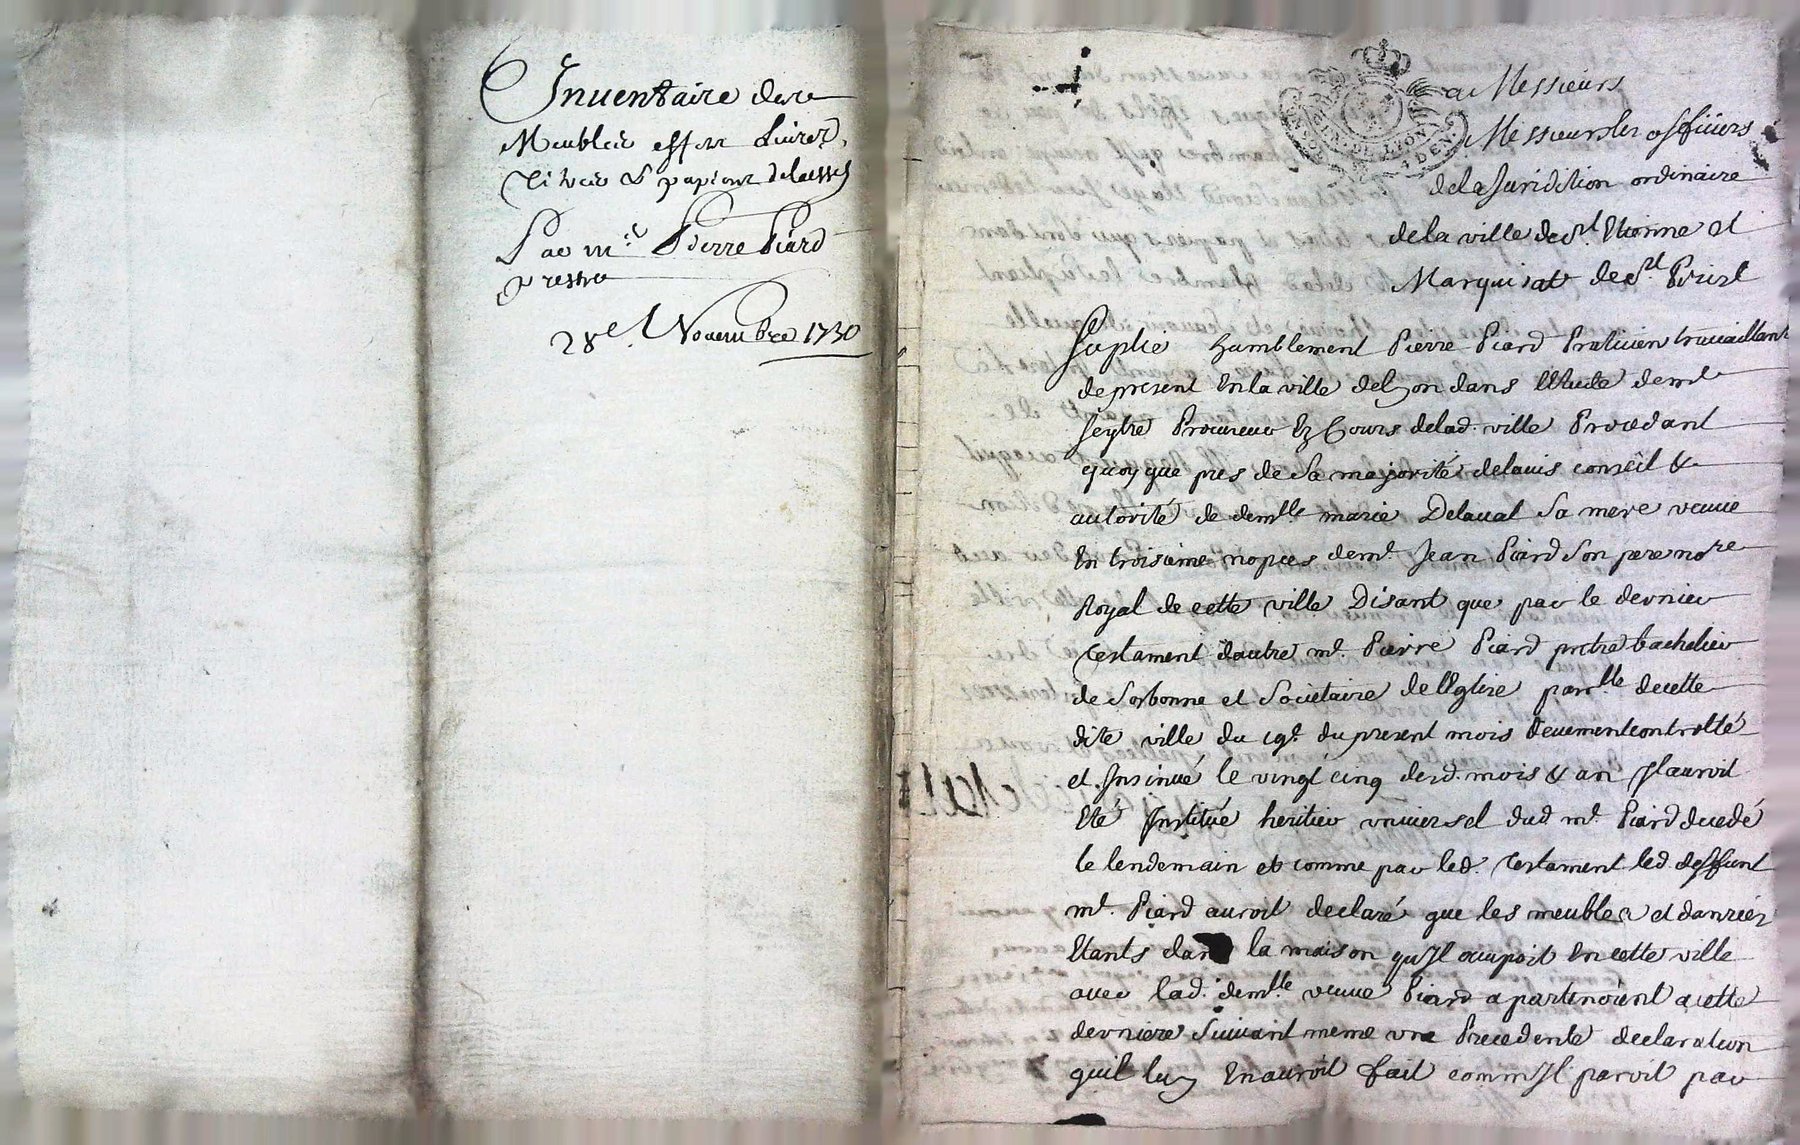 Inventaire des
Meubles effets Livres,
Titres & papiers delaissés
Par mre Pierre Piard
prestre
28e. Novembre 1730
a Messieurs
Messieurs les officiers
dela Juridition ordinaire
dela ville de st Etienne et
Marquisat de st Priest
GEN. DE LYON
Suplie humblement Pierre Piard Praticien travaillant
de present En la ville de Lyon dans l'Etude de mr
Seytre Procureur Ez Cours de lad. ville Procedant
quoy que pres de Sa majorité de lavis conseil &
autorité de demlle marie Delaval Sa mere veuve
En troisieme nopces de mr. Jean Piard Son pere nore
Royal de cette ville Disant que par le dernier
Testament dautre mr. Pierre Piard pretre bachelier
de Sorbonne et Societaire de l'Eglise parlle de cette
dite ville du 19e. du present mois deuement controllé
et Insinué le vingt cinq desd. mois & an Il auroit
Eté Institué heritier universel dud mr. Piard decedé
le lendemain et comme par led. Testament led. deffunt
mr. Piard auroit declaré que les meubles et danrées
Etants dans la maison qu'Il ocupoit En cette ville
avec lad. demlle veuve Piard apartenoient a cette
derniere Suivant meme une Precedente declaration
quil luy En auroit fait comm'Il paroit par